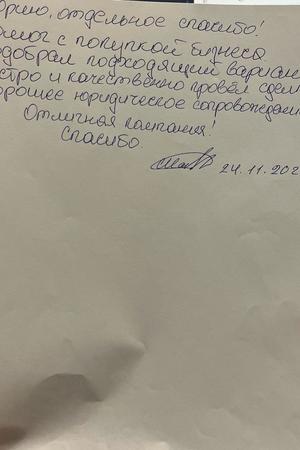 орию, отдельное спасибо!
омог с покупкой бизнеса
одобрал подходящий вариан
стро и качественно провёл сдел
орошее юридическое сопровождени
Отличная компания!
Спасибо.
24.11.202